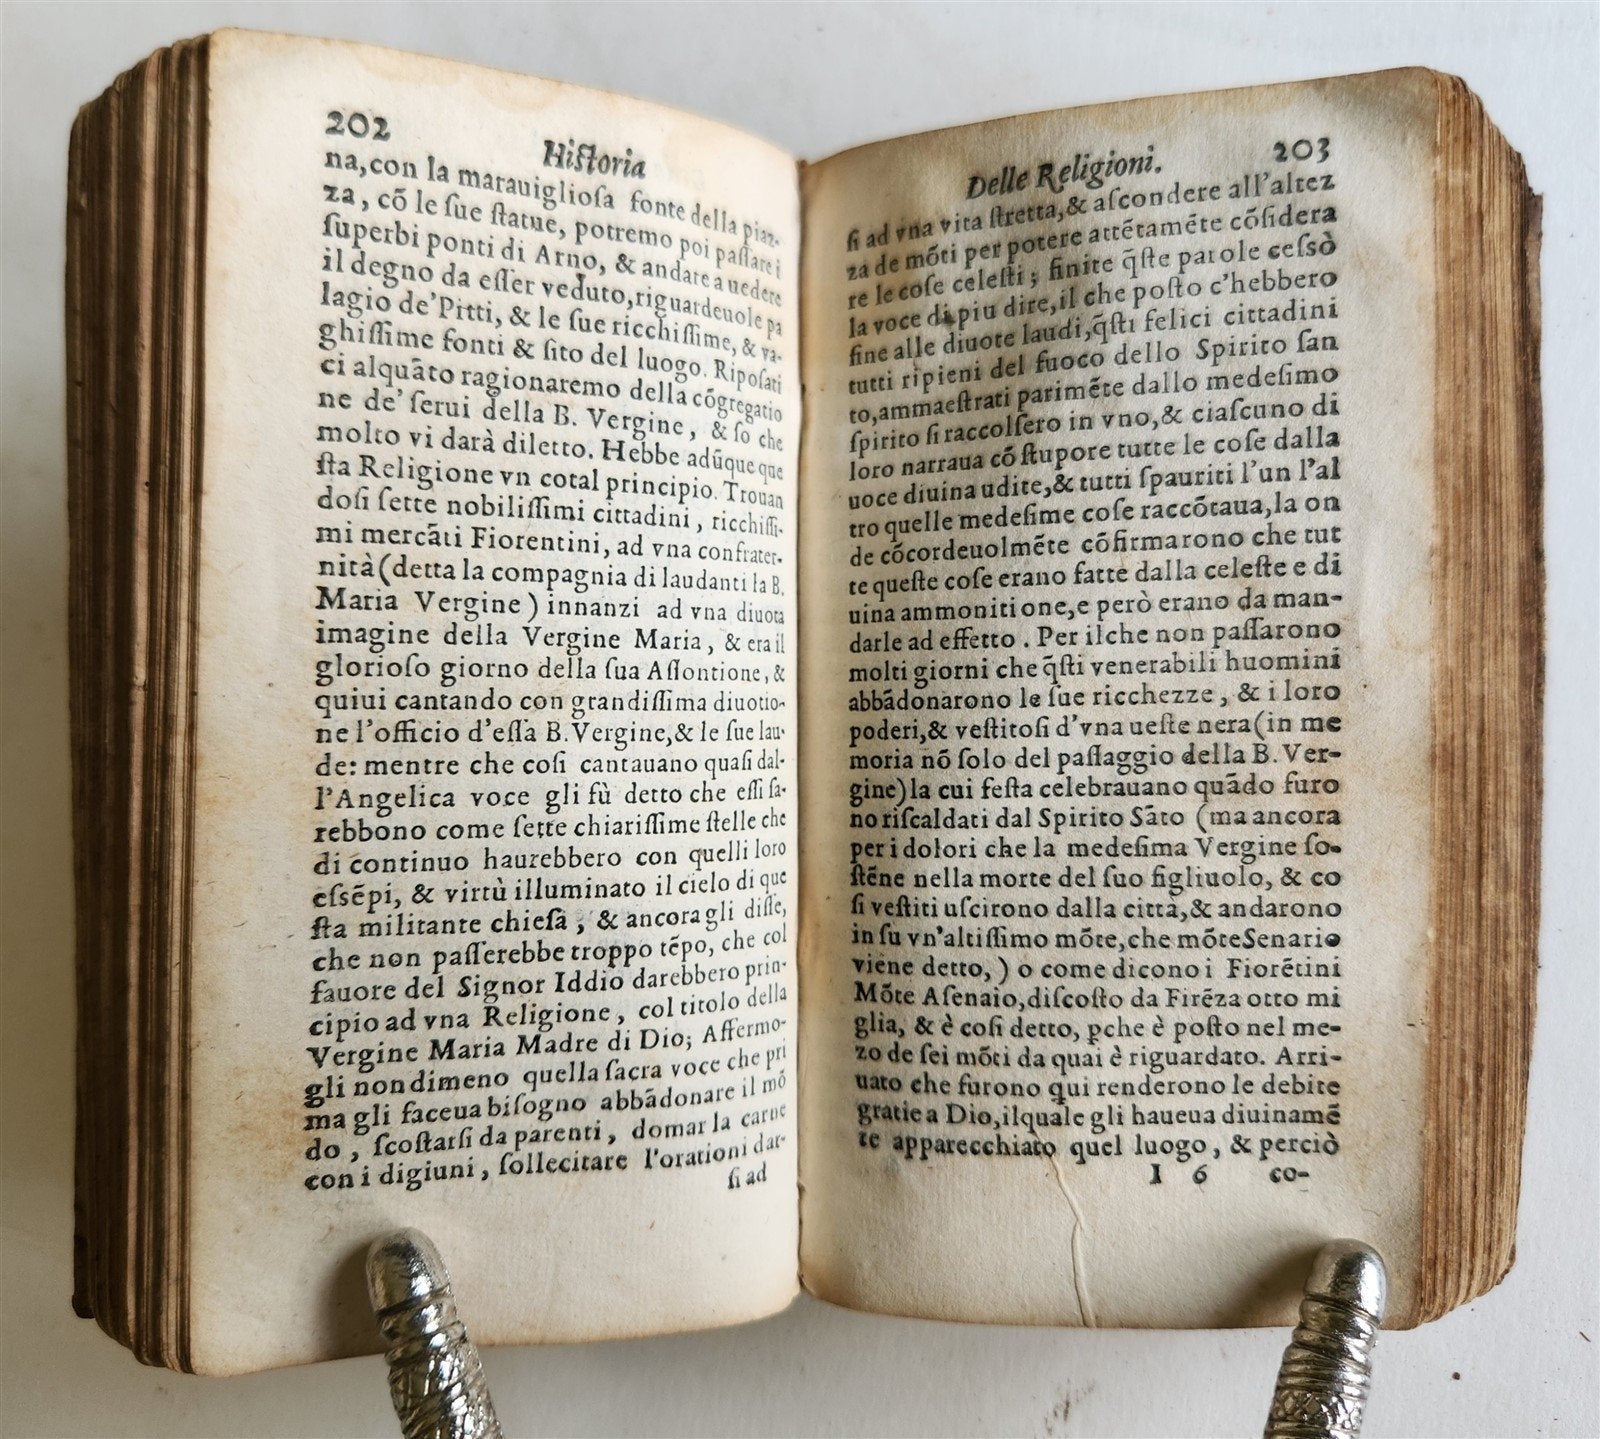 202
Hiſtoria
na, con la marauiglioſa fonte della piaz-
za, cõ le ſue ſtatue, potremo poi paſſare i
ſuperbi ponti di Arno, & andare a uedere
il degno da eſſer veduto, riguardeuole pa
lagio de'Pitti, & le ſue ricchiſſime, & va-
ghiſſime fonti & ſito del luogo. Ripoſati
ci alquãto ragionaremo della cõgregatio
ne de' ſerui della B. Vergine, & ſo che
molto vi darà diletto. Hebbe adũque que
ſta Religione vn cotal principio. Trouan
doſi ſette nobiliſſimi cittadini, ricchiſſi-
mi mercãti Fiorentini, ad vna confrater-
nità (detta la compagnia di laudanti la B.
Maria Vergine) innanzi ad vna diuota
imagine della Vergine Maria, & era il
glorioſo giorno della ſua Aſſontione, &
quiui cantando con grandiſſima diuotio-
ne l'officio d'eſſa B. Vergine, & le ſue lau-
de: mentre che coſi cantauano quaſi dal-
l'Angelica voce gli fù detto che eſſi ſa-
rebbono come ſette chiariſſime ſtelle che
di continuo haurebbero con quelli loro
eſsẽpi, & virtù illuminato il cielo di que
ſta militante chieſa; & ancora gli diſſe,
che non paſſerebbe troppo tẽpo, che col
fauore del Signor Iddio darebbero prin-
cipio ad vna Religione, col titolo della
Vergine Maria Madre di Dio; Affermo-
gli nondimeno quella ſacra voce che pri
ma gli faceua biſogno abbãdonare il mõ
do, ſcoſtarſi da parenti, domar la carne
con i digiuni, ſollecitare l'orationi dar-
ſi ad
Delle Religioni.
203
ſi ad vna vita ſtretta, & aſcondere all'altez
za de mõti per potere attẽtamẽte cõſidera
re le coſe celeſti; finite q̃ſte parole ceſsò
la voce di piu dire, il che poſto c'hebbero
fine alle diuote laudi, q̃ſti felici cittadini
tutti ripieni del fuoco dello Spirito ſan
to, ammaeſtrati parimẽte dallo medeſimo
ſpirito ſi raccolſero in vno, & ciaſcuno di
loro narraua cõ ſtupore tutte le coſe dalla
uoce diuina udite, & tutti ſpauriti l'un l'al
tro quelle medeſime coſe raccõtaua, la on
de cõcordeuolmẽte cõfirmarono che tut
te queſte coſe erano fatte dalla celeſte e di
uina ammonitione, e però erano da man-
darle ad effetto. Per ilche non paſſarono
molti giorni che q̃ſti venerabili huomini
abbãdonarono le ſue ricchezze, & i loro
poderi, & veſtitoſi d'vna ueſte nera (in me
moria nõ ſolo del paſſaggio della B. Ver-
gine) la cui feſta celebrauano quãdo furo
no riſcaldati dal Spirito Sãto (ma ancora
per i dolori che la medeſima Vergine ſo-
ſtẽne nella morte del ſuo figliuolo, & co
ſi veſtiti uſcirono dalla città, & andarono
in ſu vn'altiſſimo mõte, che mõte Senario
viene detto,) o come dicono i Fiorẽtini
Mõte Aſenaio, diſcoſto da Firẽza otto mi
glia, & è coſi detto, ꝑche è poſto nel me-
zo de ſei mõti da quai è riguardato. Arri-
uato che furono qui renderono le debite
gratie a Dio, ilquale gli haueua diuinamẽ
te apparecchiato quel luogo, & perciò
I 6 co-